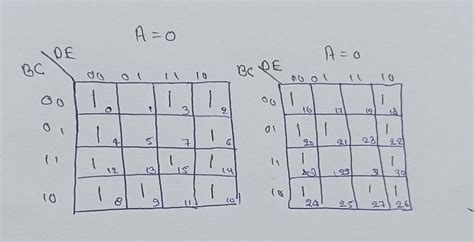 A=0
A=0
DE
BC
00 01 11 10
00 1 0 1 1 3 1 2
01 1 4 5 7 1 6
11 1 12 13 1 15 1 14
10 1 8 1 9 11 1 10
DE
BC
00 01 11 10
00 1 16 17 19 1 18
01 1 20 1 21 23 1 22
11 1 29 1 30
10 1 24 25 1 27 1 26